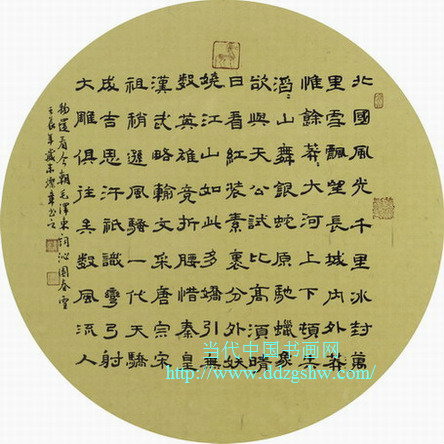 北國風光千里冰封萬
里雪飄望長城內外
惟餘莽〻大河上下頓失
滔〻山舞銀蛇原馳蠟象
欲與天公試比高須晴
日看紅裝素裹分外妖
嬈江山如此多嬌引無
數英雄競折腰惜秦皇
漢武略輸文采唐宗宋
祖稍遜風騷一代天驕
成吉思汗祇識彎弓射
大雕俱往矣數風流人
物還看今朝毛澤東詞沁園春雪
壬辰年歲末
当代中国书画网
http://www.ddzgshw.com/